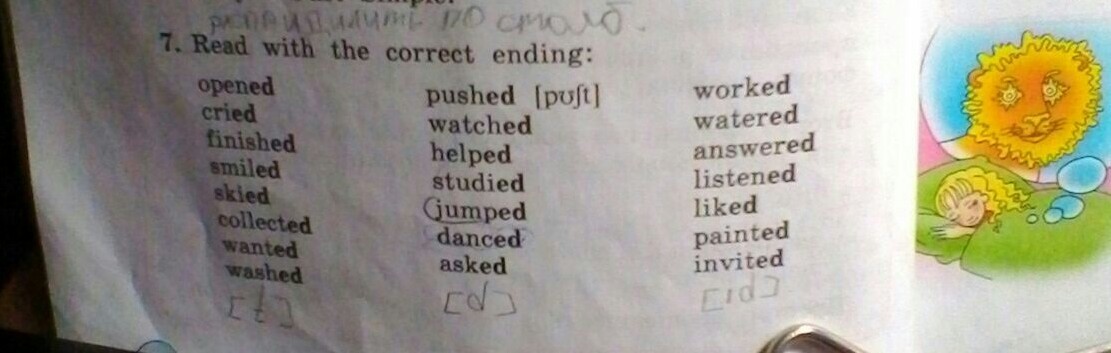 распридилить по столб.
7. Read with the correct ending:
opened
cried
finished
smiled
skied
collected
wanted
washed
[t]
pushed [pʊʃt]
watched
helped
studied
jumped
danced
asked
[d]
worked
watered
answered
listened
liked
painted
invited
[ıd]